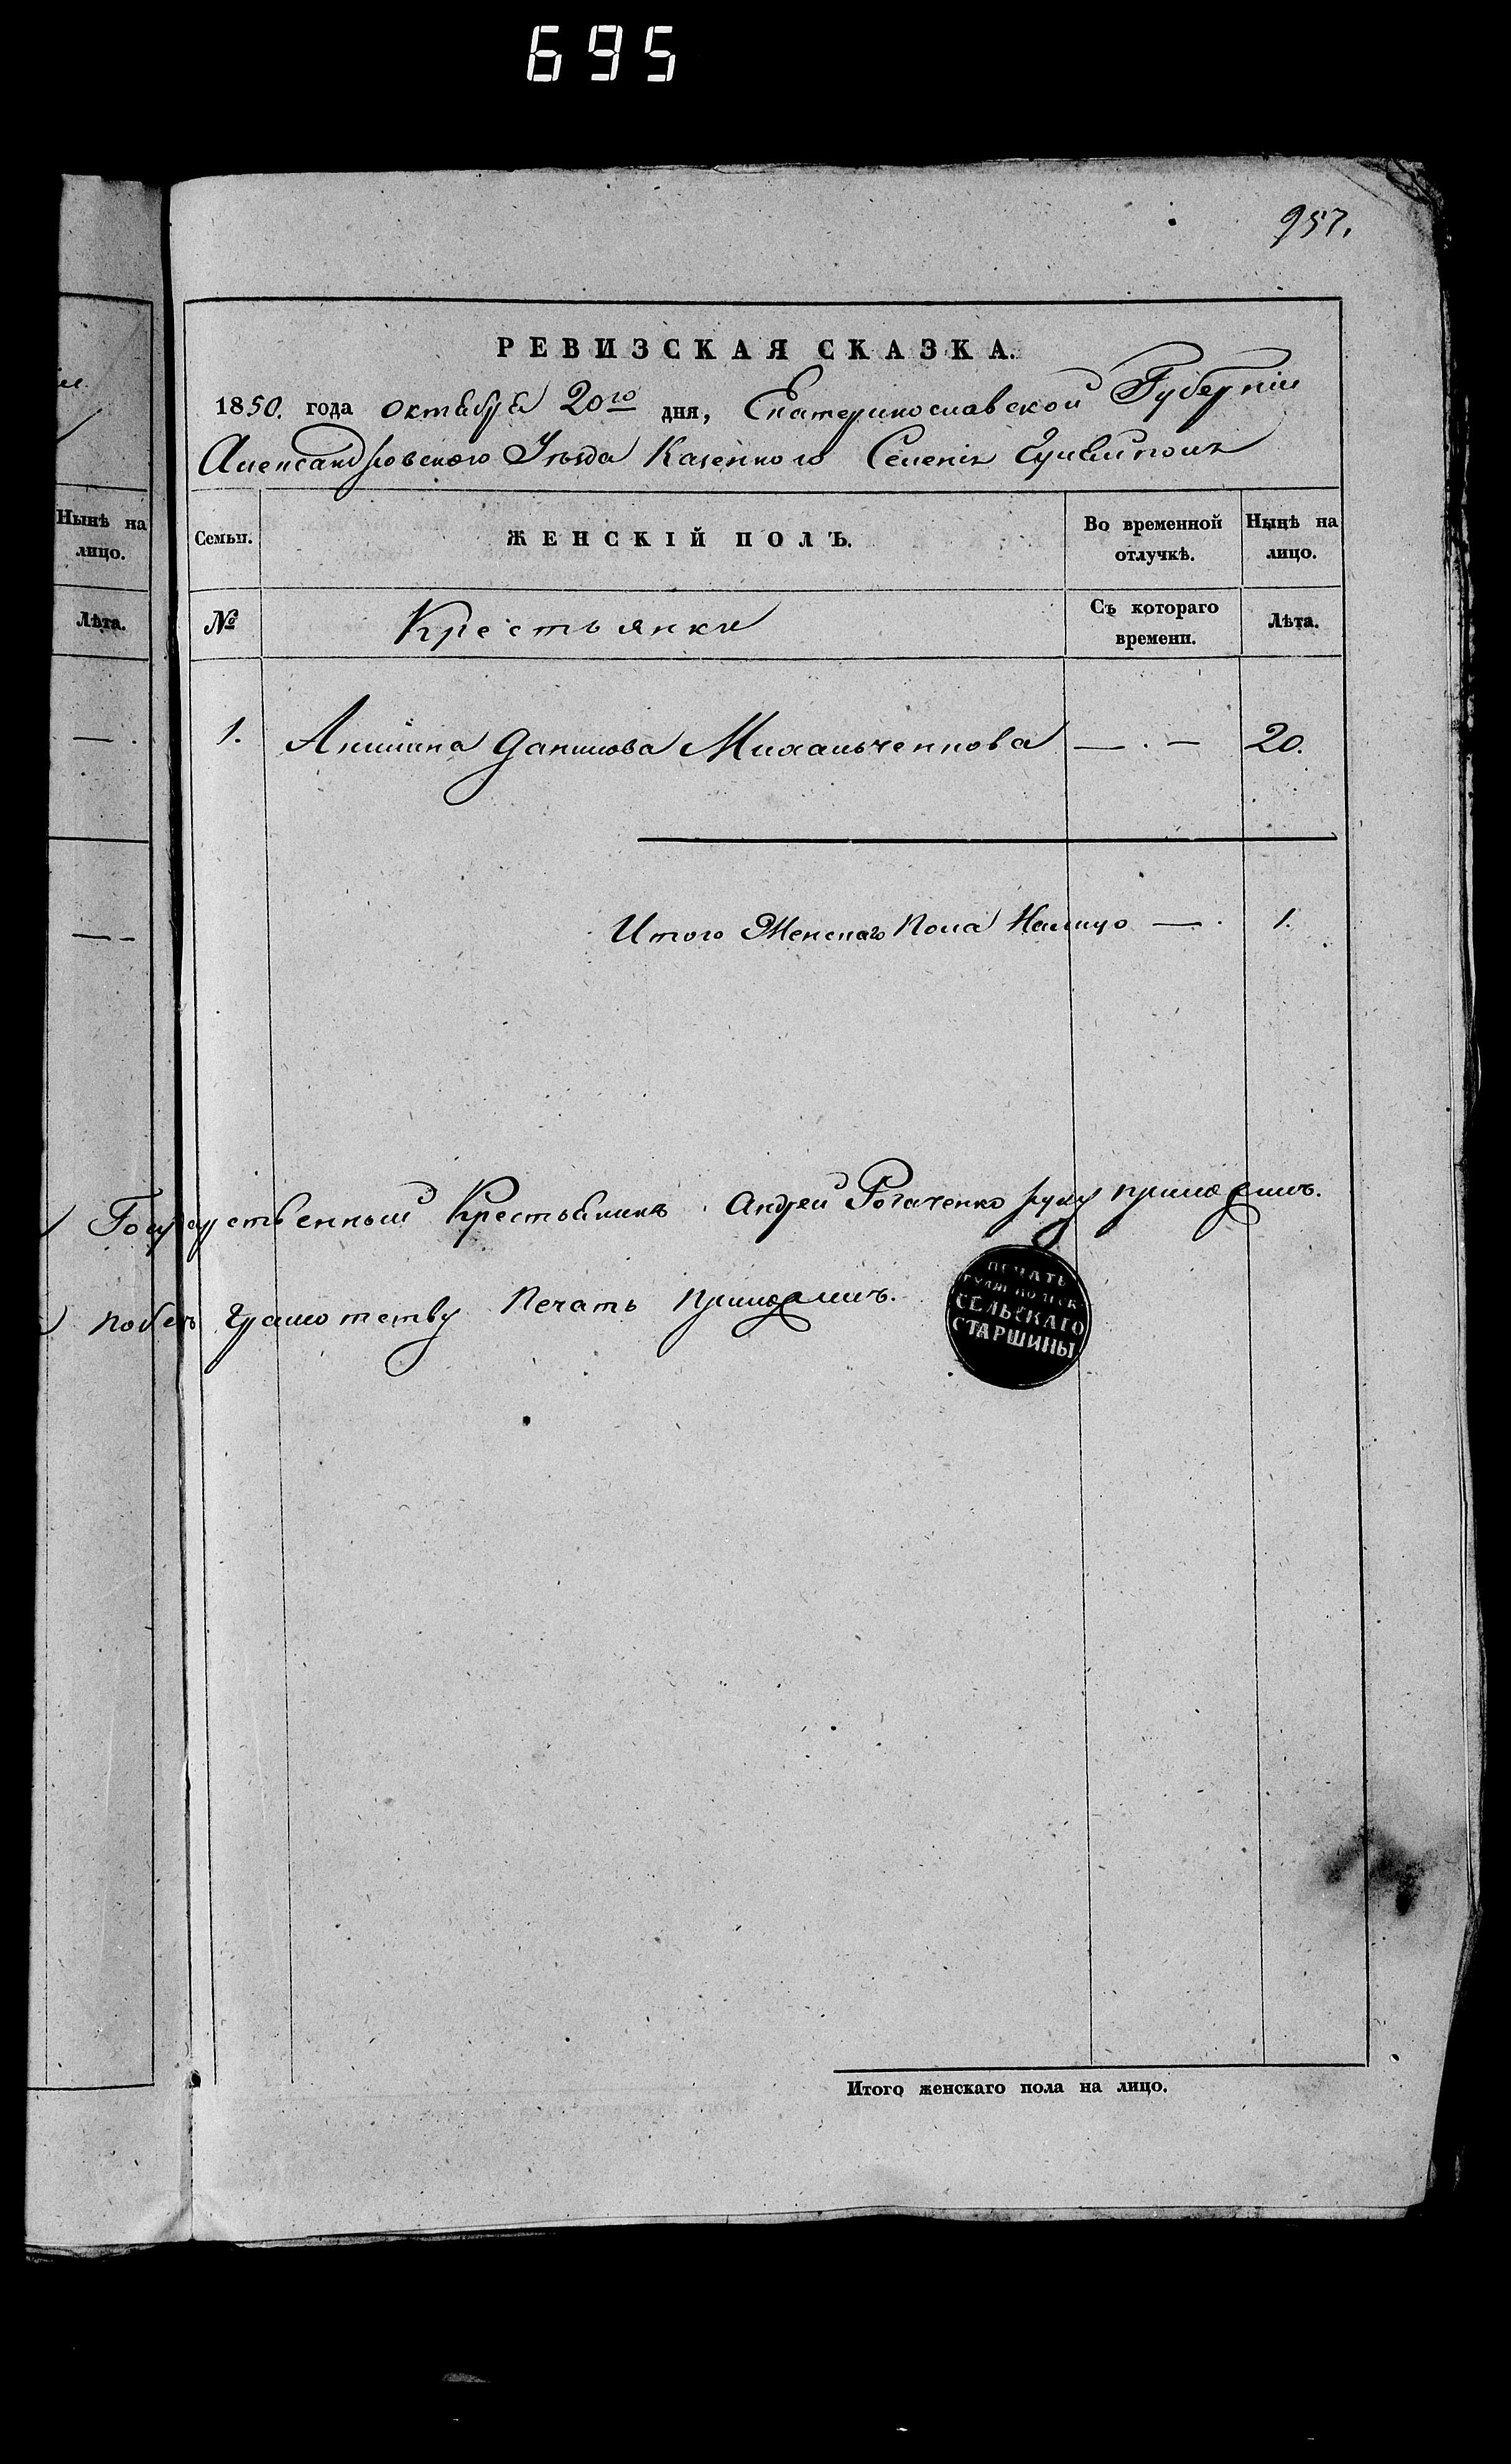 695
957.
РЕВИЗСКАЯ СКАЗКА.
1850. года октября 20го дня, Екатеринославской Губерніи
Александровского Уѣзда Казенного Селенія Гуляйполя
Нынѣ на лицо.
Лѣта.
Семьи. ЖЕНСКІЙ ПОЛЪ. Во временной отлучкѣ. Нынѣ на лицо.
№ Крестьянки Съ котораго времени. Лѣта.
1. Данилова Михальченкова — . — 20.
Итого Женскаго Пола Налицо — . 1.
Государственный Крестьянинъ Андрей Рогаченко руку приложилъ.
грамотству Печать приложилъ.
ПЕЧАТЬ
ГУЛЯЙПОЛЬСК.
СЕЛЬСКАГО
СТАРШИНЫ
Итого женскаго пола на лицо.